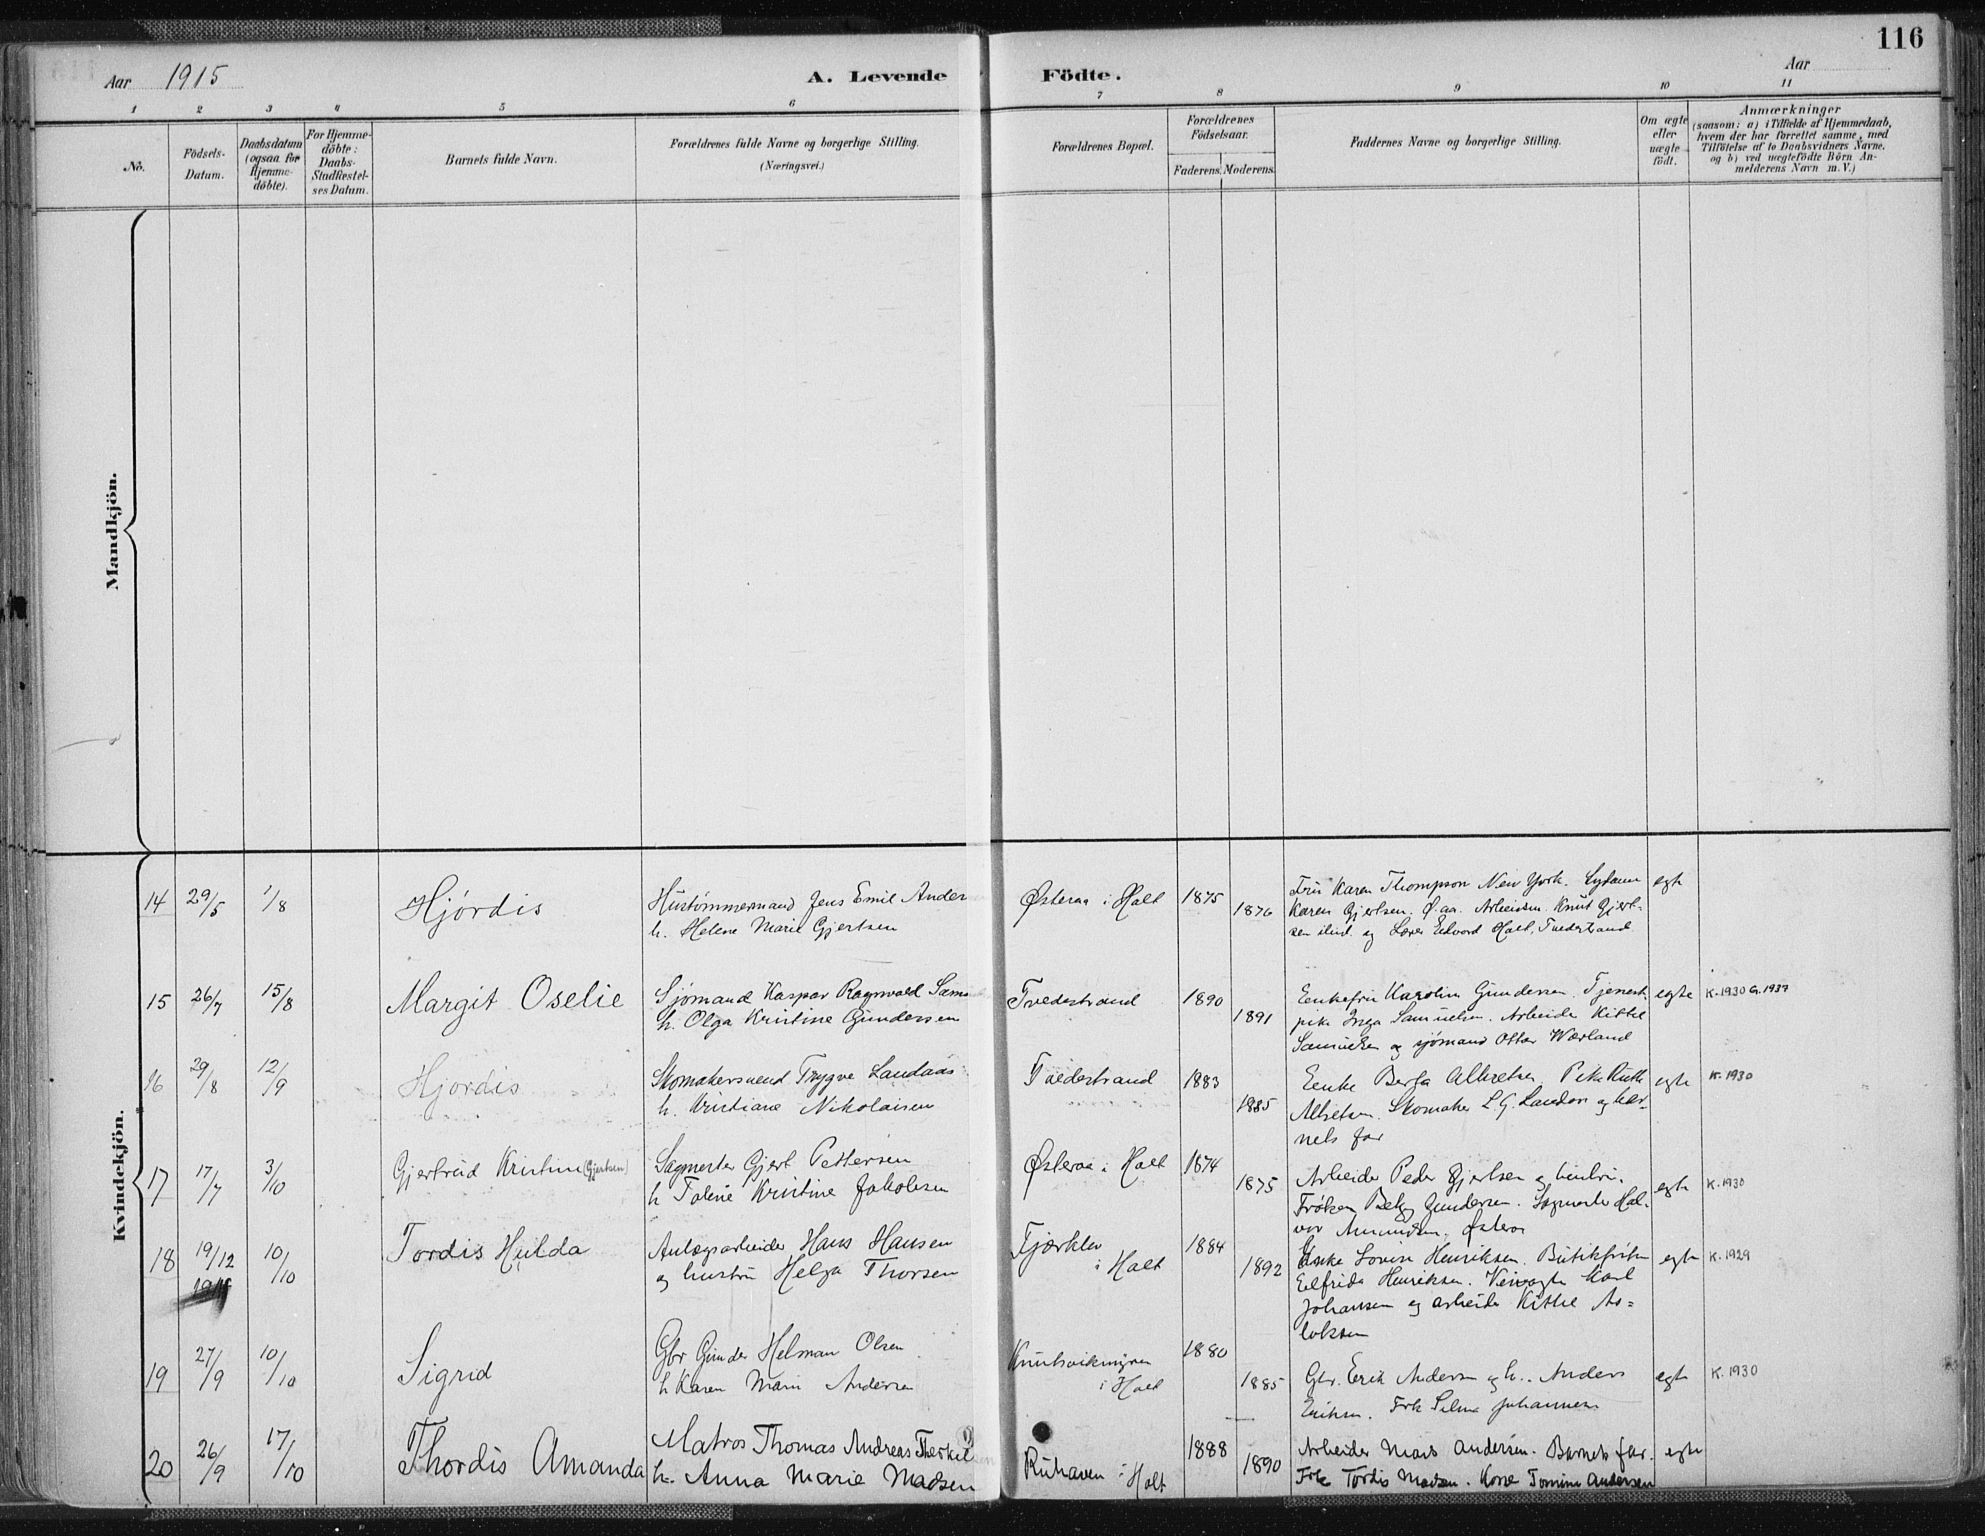 116
Aar 1915
A. Levende Födte.
Aar
1 2 3 4 5 6 7 8 9 10 11
No.
Födsels-
Datum.
Daabsdatum
(ogsaa for
Hjemme-
döbte).
For Hjemme-
döbte:
Daabs-
Stadfæstel-
ses Datum.
Barnets fulde Navn.
Forældrenes fulde Navne og borgerlige Stilling.
(Næringsvei.)
Forældrenes Bopæl.
Forældrenes
Födselsaar.
Faderens. Moderens.
Faddernes Navne og borgerlige Stilling.
Om ægte
eller
uægte
født.
Anmærkninger
(saasom: a) i Tilfælde af Hjemmedaab,
hvem der har forrettet samme, med
Tilföielse af to Daabsvidners Navne,
og b) ved uægtefödte Börn An-
melderens Navn m. V.)
Mandkjön.
Kvindekjön.
14 29/5 1/8 Hjórdis
Hustömmermand Jens Emil Ander
h. Helene Marie Gjertsen
Østeraa i Holt 1875 1876
Fru Karen Thompson New York.
Karen Gjertsen. Ø.aa. Arbeidsm. Knut Gjert-
sen ibid. og Lærer Edvard Holt, Tvedestrand
egte
15 26/7 15/8 Margit Oselie
Sjömand Kaspar Ragnvald Sams
h. Olga Kristine Gundersen
Tvedestrand 1890 1891
Eenkefru Karoline Gundersen. Tjenest-
pike Inga Samuelsen. Arbeider Kittel
Samuelsen og sjömand Ottar Wærland
egte K. 1930 G. 1937
16 29/8 12/9 Hjordis
Skomakersvend Trygve Landaas
h. Kristiane Nikolaisen
Tvedestrand 1883 1885
Enke Berta Albretsen Pike Ruth
Albretsen. Skomaker L. G. Landaas og bar-
nets far
egte K. 1930
17 17/7 3/10 Gjertrud Kristine (Gjertsen)
Sagmester Gjert Pettersen
h Tolene Kristine Jakobsen
Østeraa i Holt 1874 1875
Arbeider Peder Gjertsen og hustru.
Fröken Gundersen. Sagmester Hal-
vor Amundsen, Østeraa
egte K. 1930
18 19/12 10/10 Tordis Hulda
Anlægsarbeider Hans Hansen
og hustru Helga Thorsen
Fjærkleiv
i Holt 1884 1892
Enke Lovise Henriksen. Butikfröken
Elfrida Henriksen. Veivogter Karl
Johansen og arbeider Kittel As=
laksen
egte K. 1929
19 27/9 10/10 Sigrid
Gbr Gunder Helman Olsen
h Karen Marie Andersen
i Holt 1880 1885
Gbr. Erik Andersen og h. Anders
Eriksen. Frk Selma Johannesen
egte K. 1930
20 26/9 17/10 Thordis Amanda
Matros Thomas Andreas Therkil
h. Anna Marie Madsen
Ruhaven i Holt 1888 1890
Arbeider Mads Andersen. Barnets far.
Frk Tordis Madsen. Kone Tomine Andersen
egte